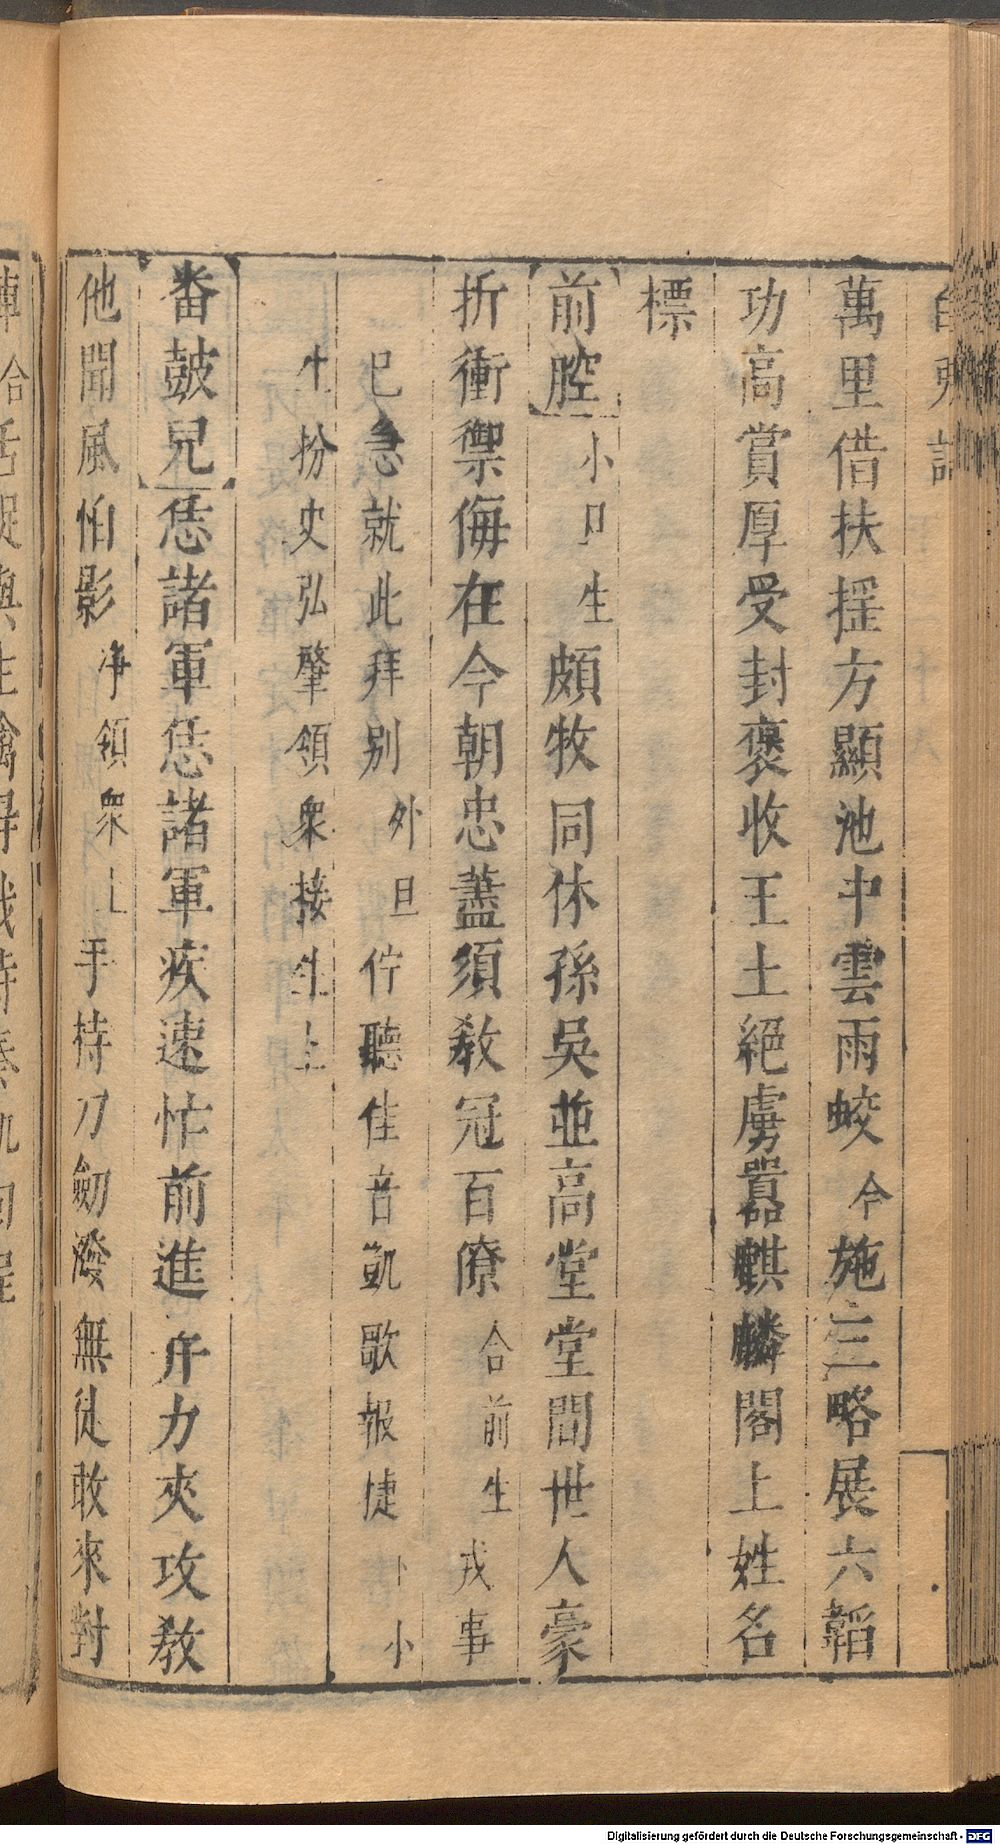 萬里借扶搖方顯池中雲雨蛟合施三略展六韜
功高賞厚受封褒收王土絕虜囂麒麟閣上姓名
標
前腔小旦生頗牧同休孫吳並高堂堂間世人豪
折衝禦侮在今朝忠藎須教冠百僚合前生戎事
已急就此拜別外旦佇聽佳音凱歌報捷下小
生扮史弘肇領衆接生上
番鼓兒恁諸軍恁諸軍疾速忙前進并力夾攻教
他聞風怕影淨領衆上手持刀劒潑無徒敢來對
Digitalisierung gefördert durch die Deutsche Forschungsgemeinschaft - DFG